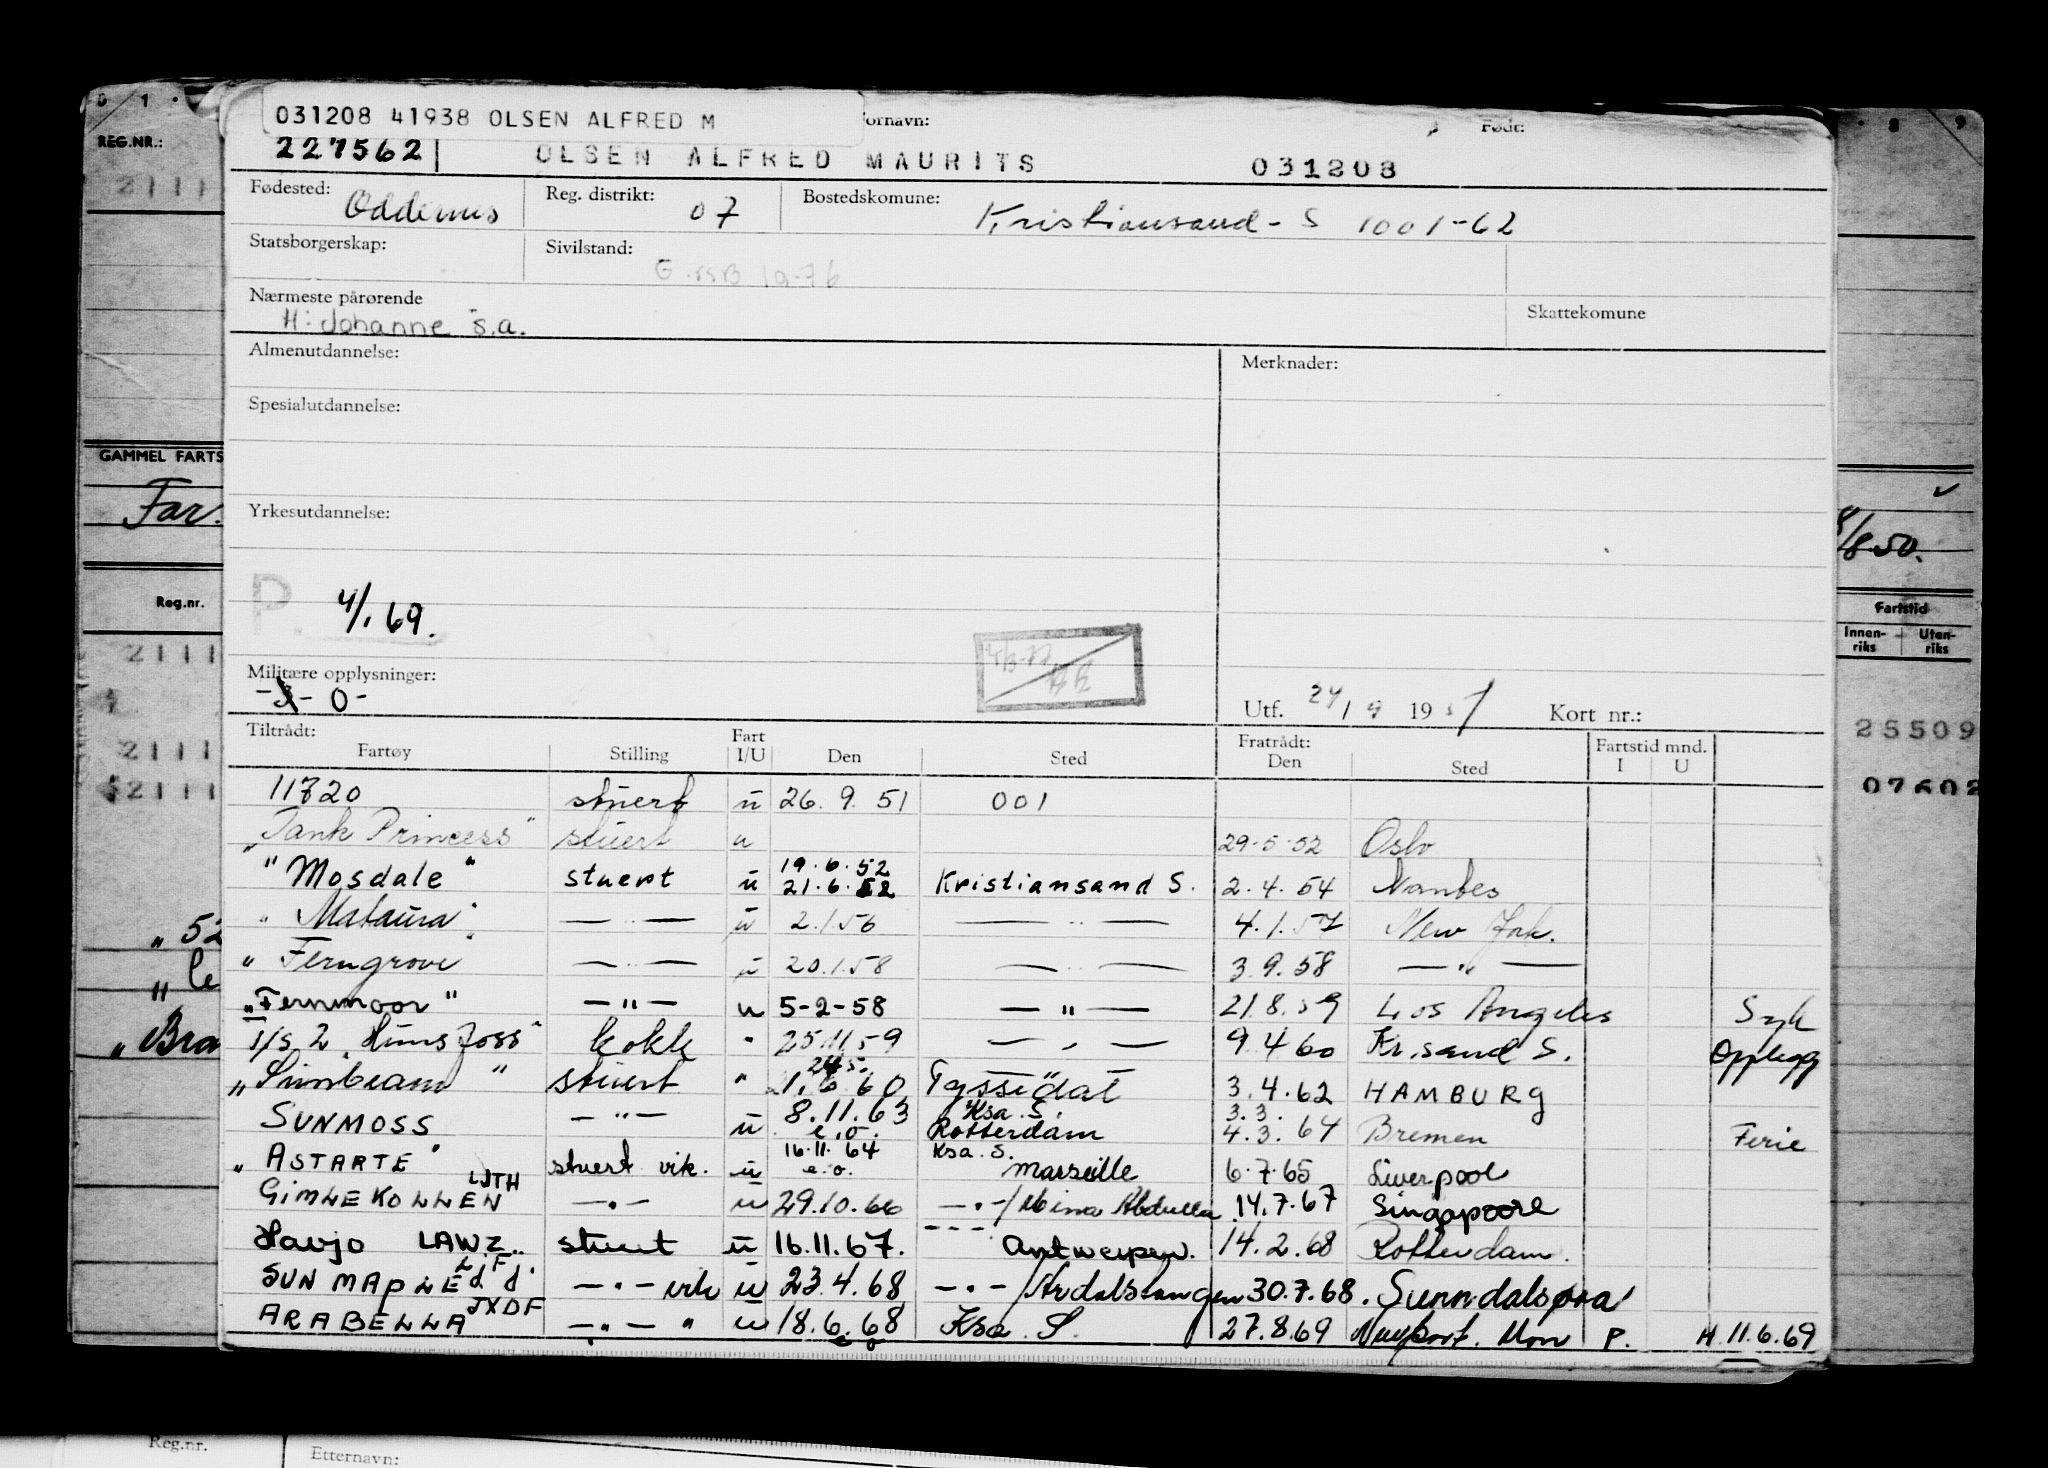 031208 41938 OLSEN ALFRED M
Fornavn: Født:
REG.NR.: 227562 OLSEN ALFRED MAURITS 031208
Fødested: Oddernes Reg. distrikt: 07 Bostedskomune: Kristiansand - S 1001-62
Statsborgerskap: Sivilstand:
Nærmeste pårørende Skattekomune
H: Johanne s.a.
Almenutdannelse: Merknader:
Spesialutdannelse:
GAMMEL FARTS
Far.
Yrkesutdannelse:
8/8.50.
P. 4/1 69.
Reg.nr. Fartstid
Innenriks Utenriks
2111
Militære opplysninger:
- 0 -
Utf. 24/9 1957 Kort nr.:
25509
07602
Tiltrådt: Fart Fratrådt: Fartstid mnd.
Fartøy Stilling I/U Den Sted Den Sted I U
11720 stuert u 26. 9. 51 001
"Tank Princess" stuert u 29-5-52 Oslo
"Mosdale" stuert u 19.6.52 21.6.52 Kristiansand S. 2.4.54 Nantes
"Mataura" — " — u 2.1.56 — " — 4.1.57 New York.
"Ferngrove" — " — u 20.1.58 — " — 3.9.58 — " —
"Fernmoor" — " — u 5-2-58 — " — 21.8.59 Los Angeles Syk
T/S 2 "Hunsfoss" kokk " 25.11.59 — " — 9.4.60 Kr.sand S. Opplegg
"Sunbeam" stuert " 1.6.60 Tyssedal 3.4.62 HAMBURG
SUNMOSS — " — u 8.11.63 e.o. Ksa. S. Rotterdam 3.3. 4.3.64 Bremen Ferie
"ASTARTE" stuert vik. u 16.11.64 e.o. Ksa. S. Marseille 6.7.65 Liverpool
GIMLEKOLLEN LJTH — " — u 29.10.66 — " —/Mina Abdulla 14.7.67 Singapoore
Havjo LAWZ stuert u 16.11.67. Antwerpen. 14.2.68 Rotterdam.
SUN MAPLE — " — vik u 23.4.68 — " —/Årdalstangen 30.7.68. Sunndalsøra
ARABELLA JXDF — " — " u 18.6.68 e o Ksa. S. 27.8.69 Newport. Mon P. H.11.6.69
Reg.nr. Etternavn: